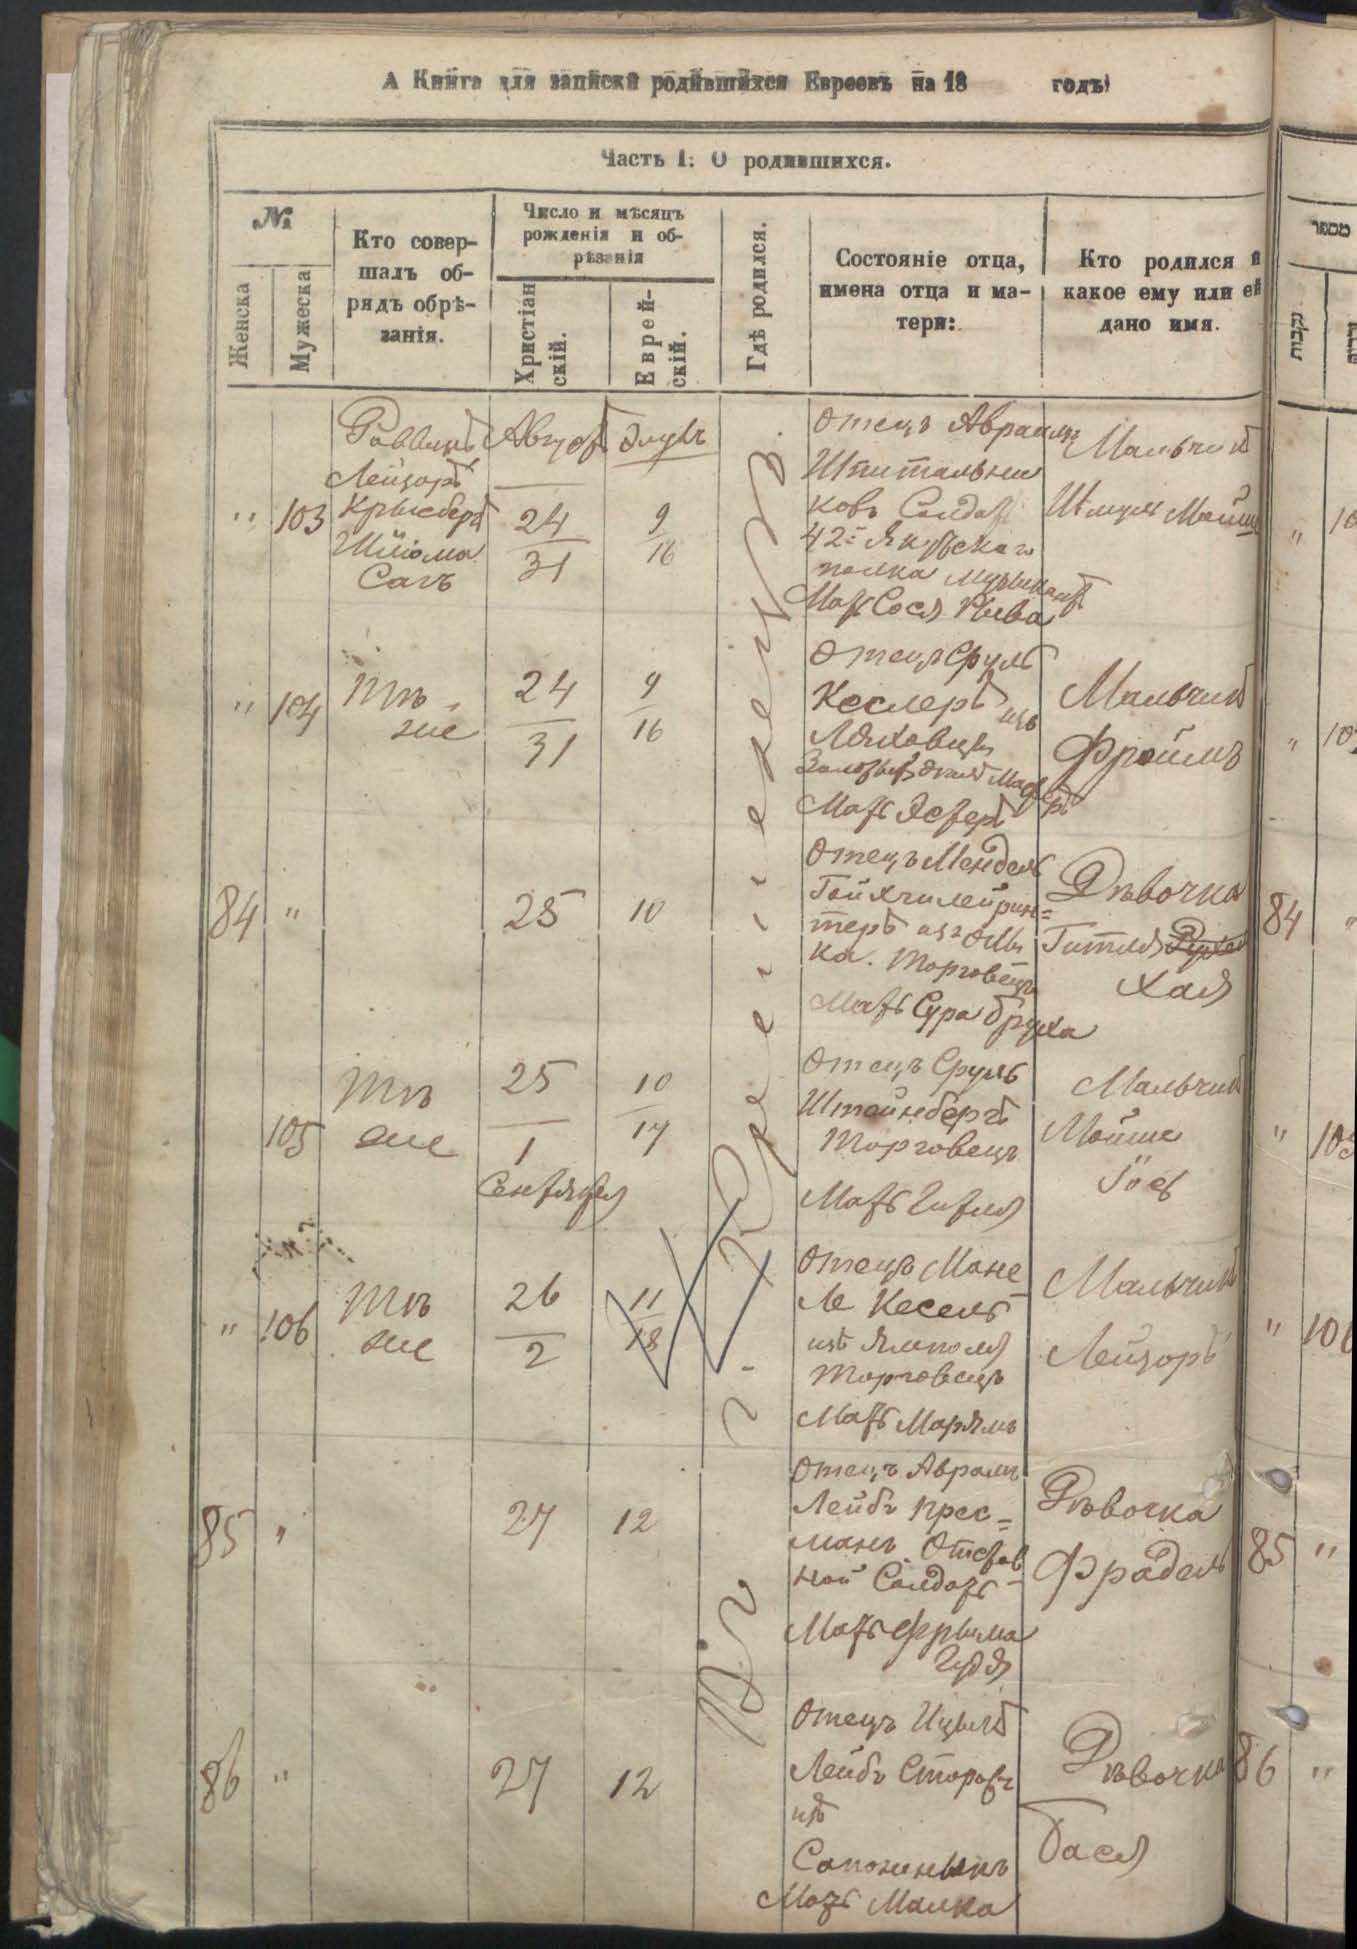 А Книга для записки родившихся Евреевъ на 18 годъ
Часть I: О родившихся.
№
Женска
Мужеска
Кто совер-
шалъ об-
рядъ обрѣ-
занія.
Число и мѣсяцъ
рожденія и об-
рѣзанія
Христіан
скій.
Еврей-
скій.
Гдѣ родился.
Состояніе отца,
имена отца и ма-
тери:
Кто родился и
какое ему или ей
дано имя.
מספר
נקבות
Въ г. Кременецъ
" 103
Раввинъ
Лейзоръ
Крысберг
Шіома
Августъ
24
31
Элулъ
9
16
Отецъ Авраамъ
Шпитальни
ковъ Солдатъ
42й Якутскаго
полка музыкантъ
Мать Сося Рыва
Мальчикъ
Шмуль Мойше
" 104
Тотъ
же
24
31
9
16
Отецъ Сруль
Кеслеръ изъ
Ляховицъ
Мать Эстеръ
Мальчикъ
Фроимъ
84 "
25
10
Отецъ Мендель
теръ изъ
ка. Торговецъ
Мать Сура Бруха
Дѣвочка
Гитля
Хая
84
105
Тотъ
же
25
1
Сентября
10
17
Отецъ Сруль
Штейнбергъ
Торговецъ
Мать Гитля
Мальчикъ
Мойше
Іось
" 105
" 106
Тотъ
же
26
2
11
18
Отецъ Мане
Ле Кесель
изъ Ямполя
Торговецъ
Мать Марьямъ
Мальчикъ
Лейзоръ
" 106
85 "
27
12
Отецъ Аврамъ
Лейбъ Прес=
манъ Отстав
ной Солдатъ
Мать Фрыма
Гудя
Дѣвочка
Фрадель
85 "
86 "
27
12
Отецъ Ицыкъ
Лейбъ
изъ
Мать Малка
Дѣвочка
Бася
86 "